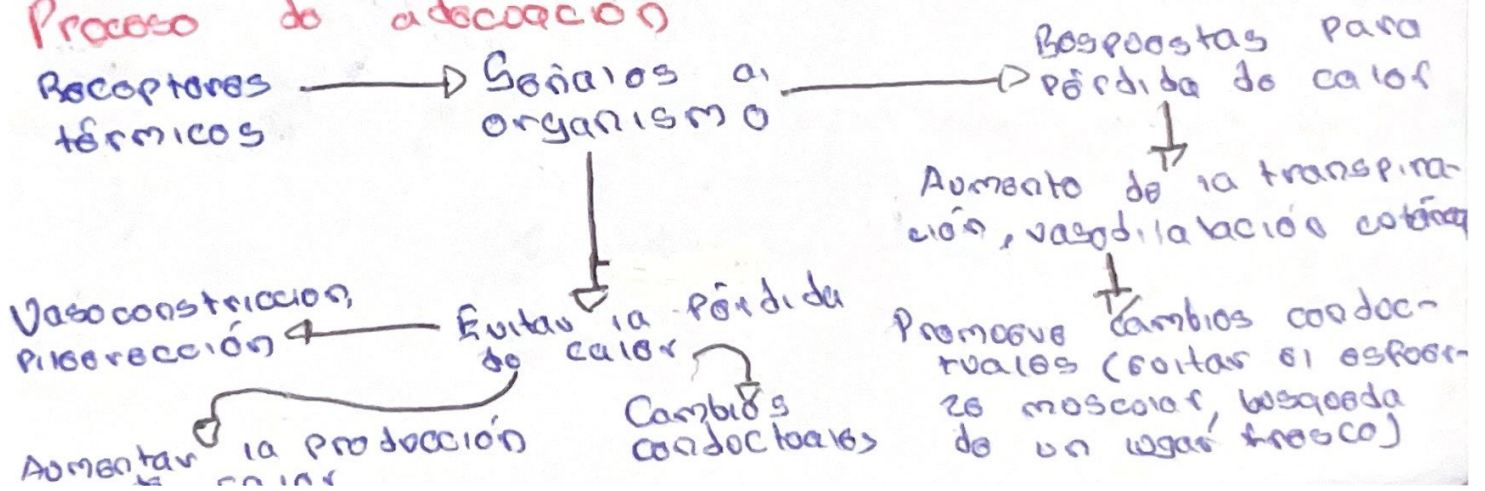 Proceso de adecuación
Receptores
térmicos
Señales al
organismo
Respuestas para
pérdida de calor
Aumento de la transpira-
ción, vasodilatación cutánea
Promueve cambios conduc-
tuales (evitar el esfuer-
zo muscular, busqueda
de un lugar fresco)
Evitar la pérdida
de calor
Vasoconstriccion,
Piloerección
Cambios
conductuales
Aumentar la producción
de calor